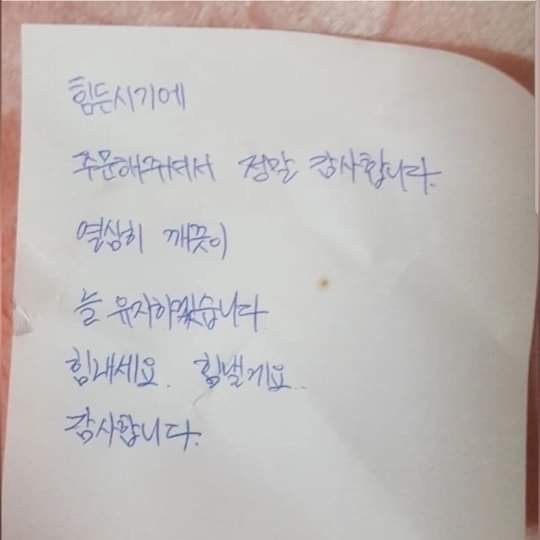 힘든시기에
주문해주셔서 정말 감사합니다.
열심히 깨끗이
늘 유지하겠습니다
힘내세요. 힘낼게요..
감사합니다.